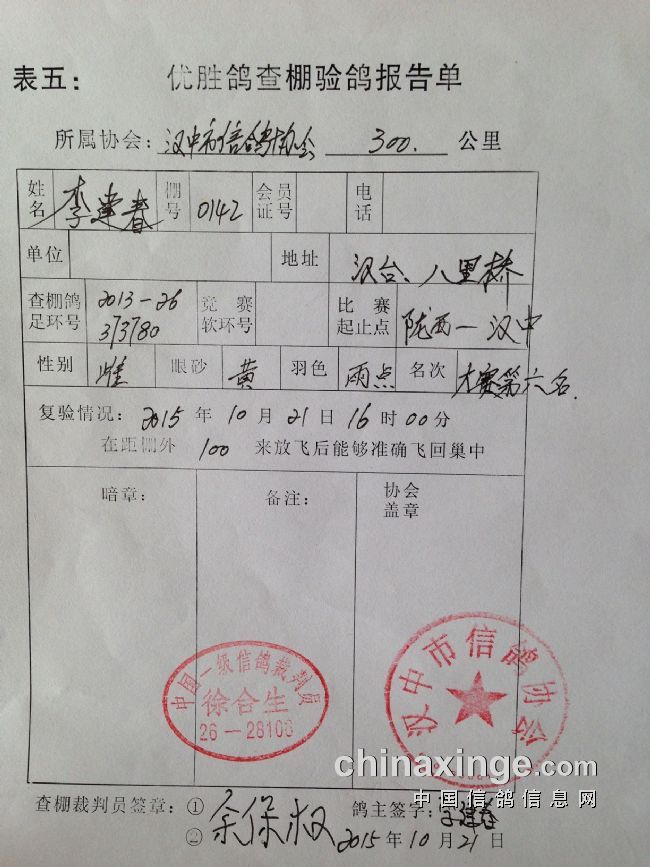 表五： 优胜鸽查棚验鸽报告单
所属协会：汉中市信鸽协会 300. 公里
姓名 李建春 棚号 0142 会员证号 电话
单位 地址 汉台、八里桥
查棚鸽足环号 2013-26 373780 竞赛软环号 比赛起止点 陇西—汉中
性别 雌 眼砂 黄 羽色 雨点 名次 大赛第六名.
复验情况：2015年10月21日16时00分
在距棚外 100 来放飞后能够准确飞回巢中
暗章： 备注： 协会盖章
中国一级信鸽裁判员
徐合生
26—28106
汉中市信鸽协会
chinaxinge.com
中国信鸽信息网
查棚裁判员签章：① 余保权 鸽主签字：李建春
② 2015年10月21日